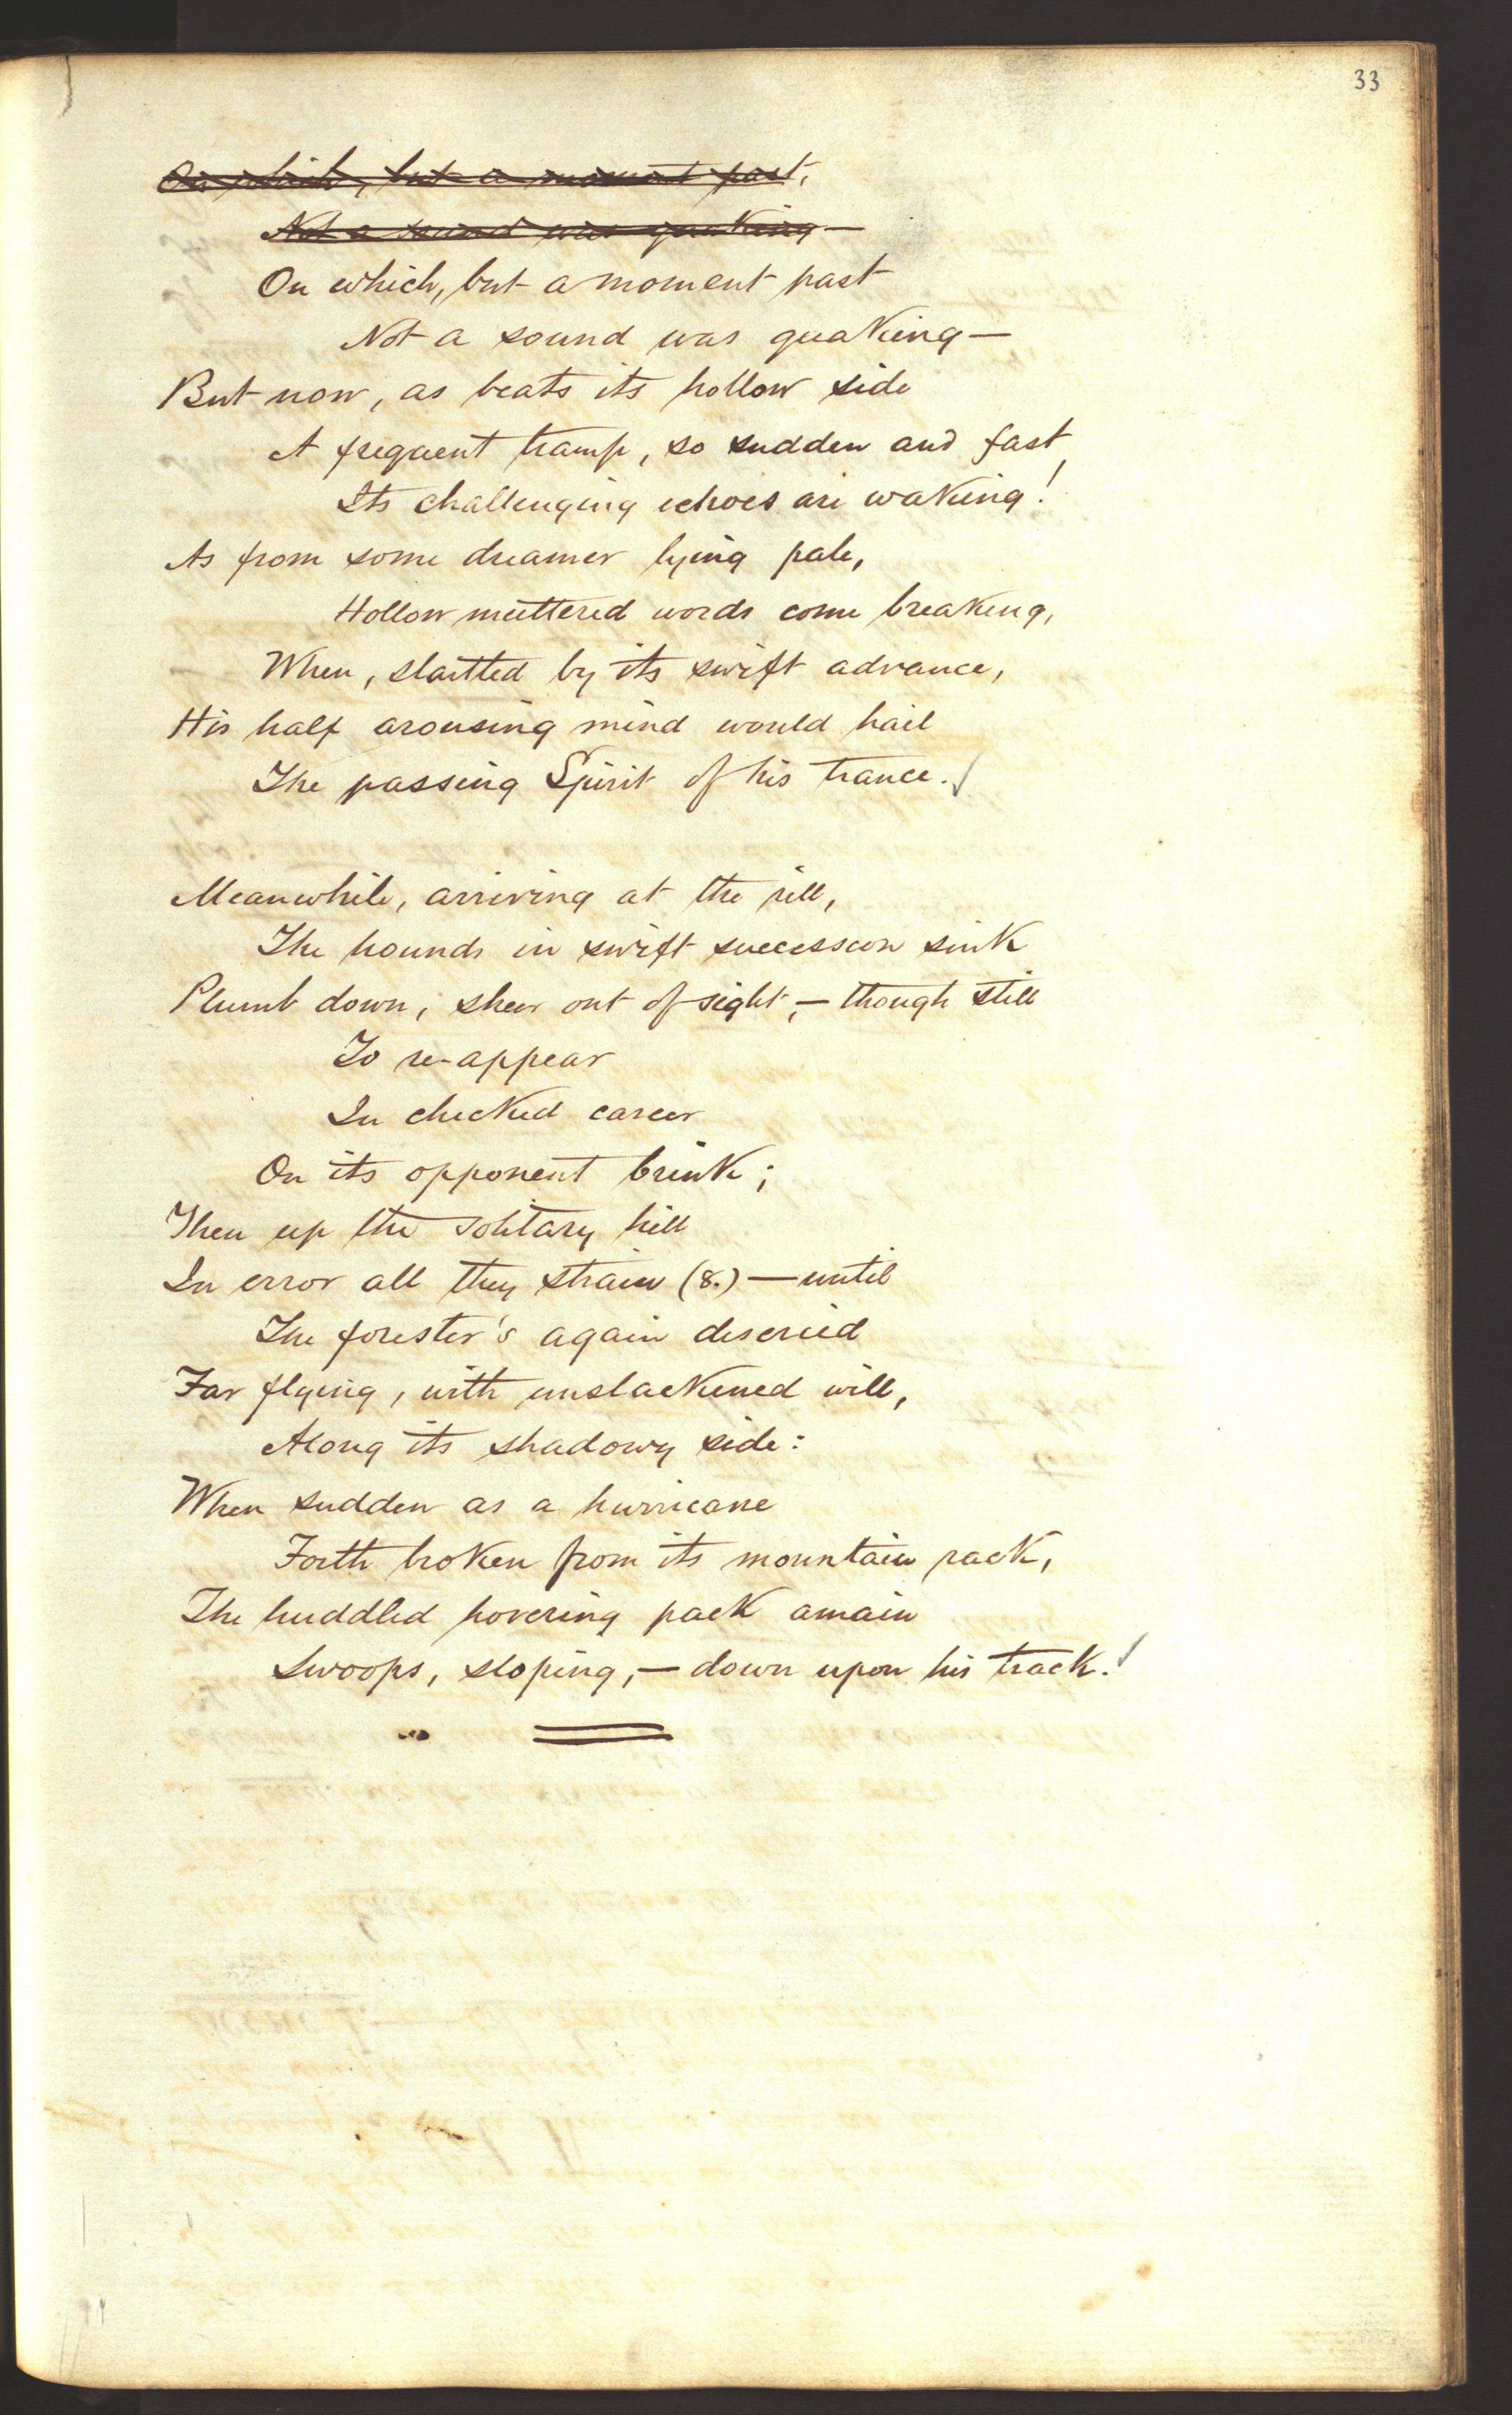 33
On which, but a moment past,
Not a sound was quaking—
On which, but a moment past
Not a sound was quaking—
But now, as beats its hollow side
A frequent tramp, so sudden and fast,
Its challenging echoes are waking!
As from some dreamer lying pale,
Hollow muttered words come breaking,
When, startled by its swift advance,
His half arousing mind would hail
The passing Spirit of his trance.
Meanwhile, arriving at the rill,
The hounds in swift succession sink
Plumb down, sheer out of sight,—though still
To re-appear
In checked career
On its opponent brink;
Then up the solitary hill
In error all they strain (8.)—until
The forester's again descried
Far flying, with unslackened will,
Along its shadowy side:
When sudden as a hurricane
Forth broken from its mountain rack,
The huddled hovering pack amain
Swoops, sloping,—down upon his track.